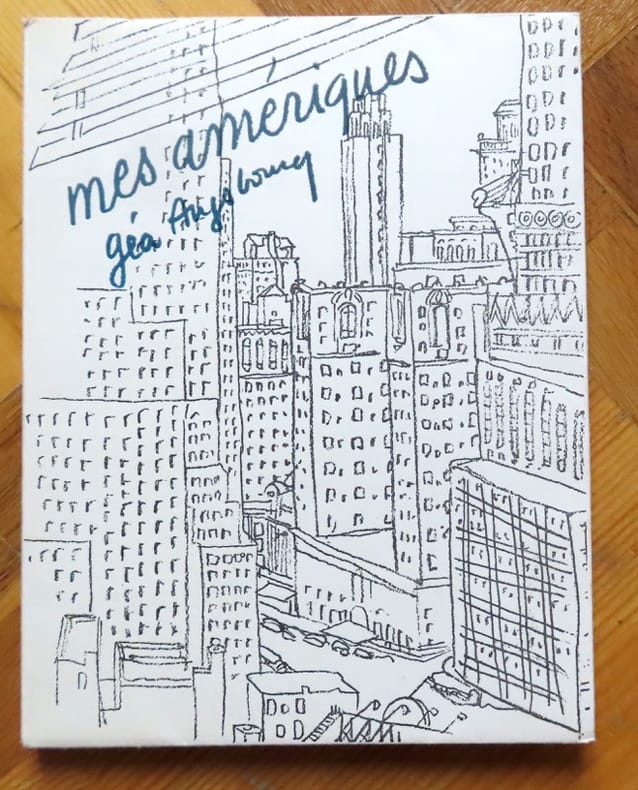 mes amériques
géa Augsbourg